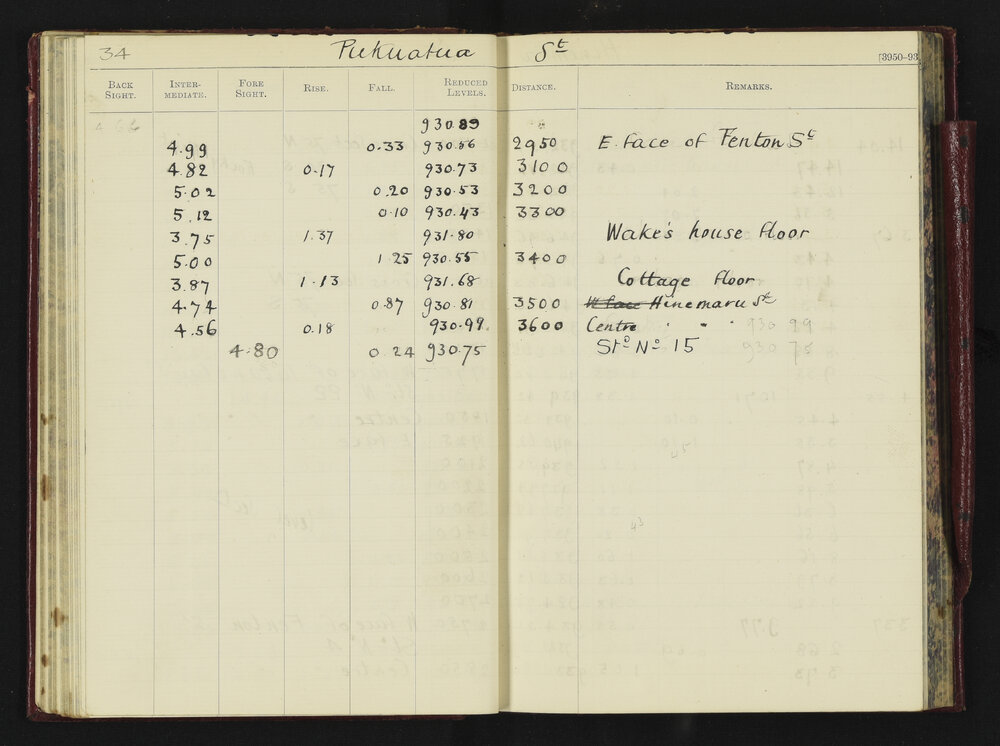 34 Pukuatua St [3950-93
BACK SIGHT. INTER-MEDIATE. FORE SIGHT. RISE. FALL. REDUCED LEVELS. DISTANCE. REMARKS.
4.66 930.89
4.99 0.33 930.56 2950 E. face of Fenton St
4.82 0.17 930.73 3100
5.02 0.20 930.53 3200
5.12 0.10 930.43 3300
3.75 1.37 931.80 Wake's house floor
5.00 1.25 930.55 3400
3.87 1.13 931.68 Cottage floor
4.74 0.87 930.81 3500 W face Hinemaru St
4.56 0.18 930.99 3600 Centre " " " 930 99
4.80 0.24 930.75 Stn No 15 930 75
45
43